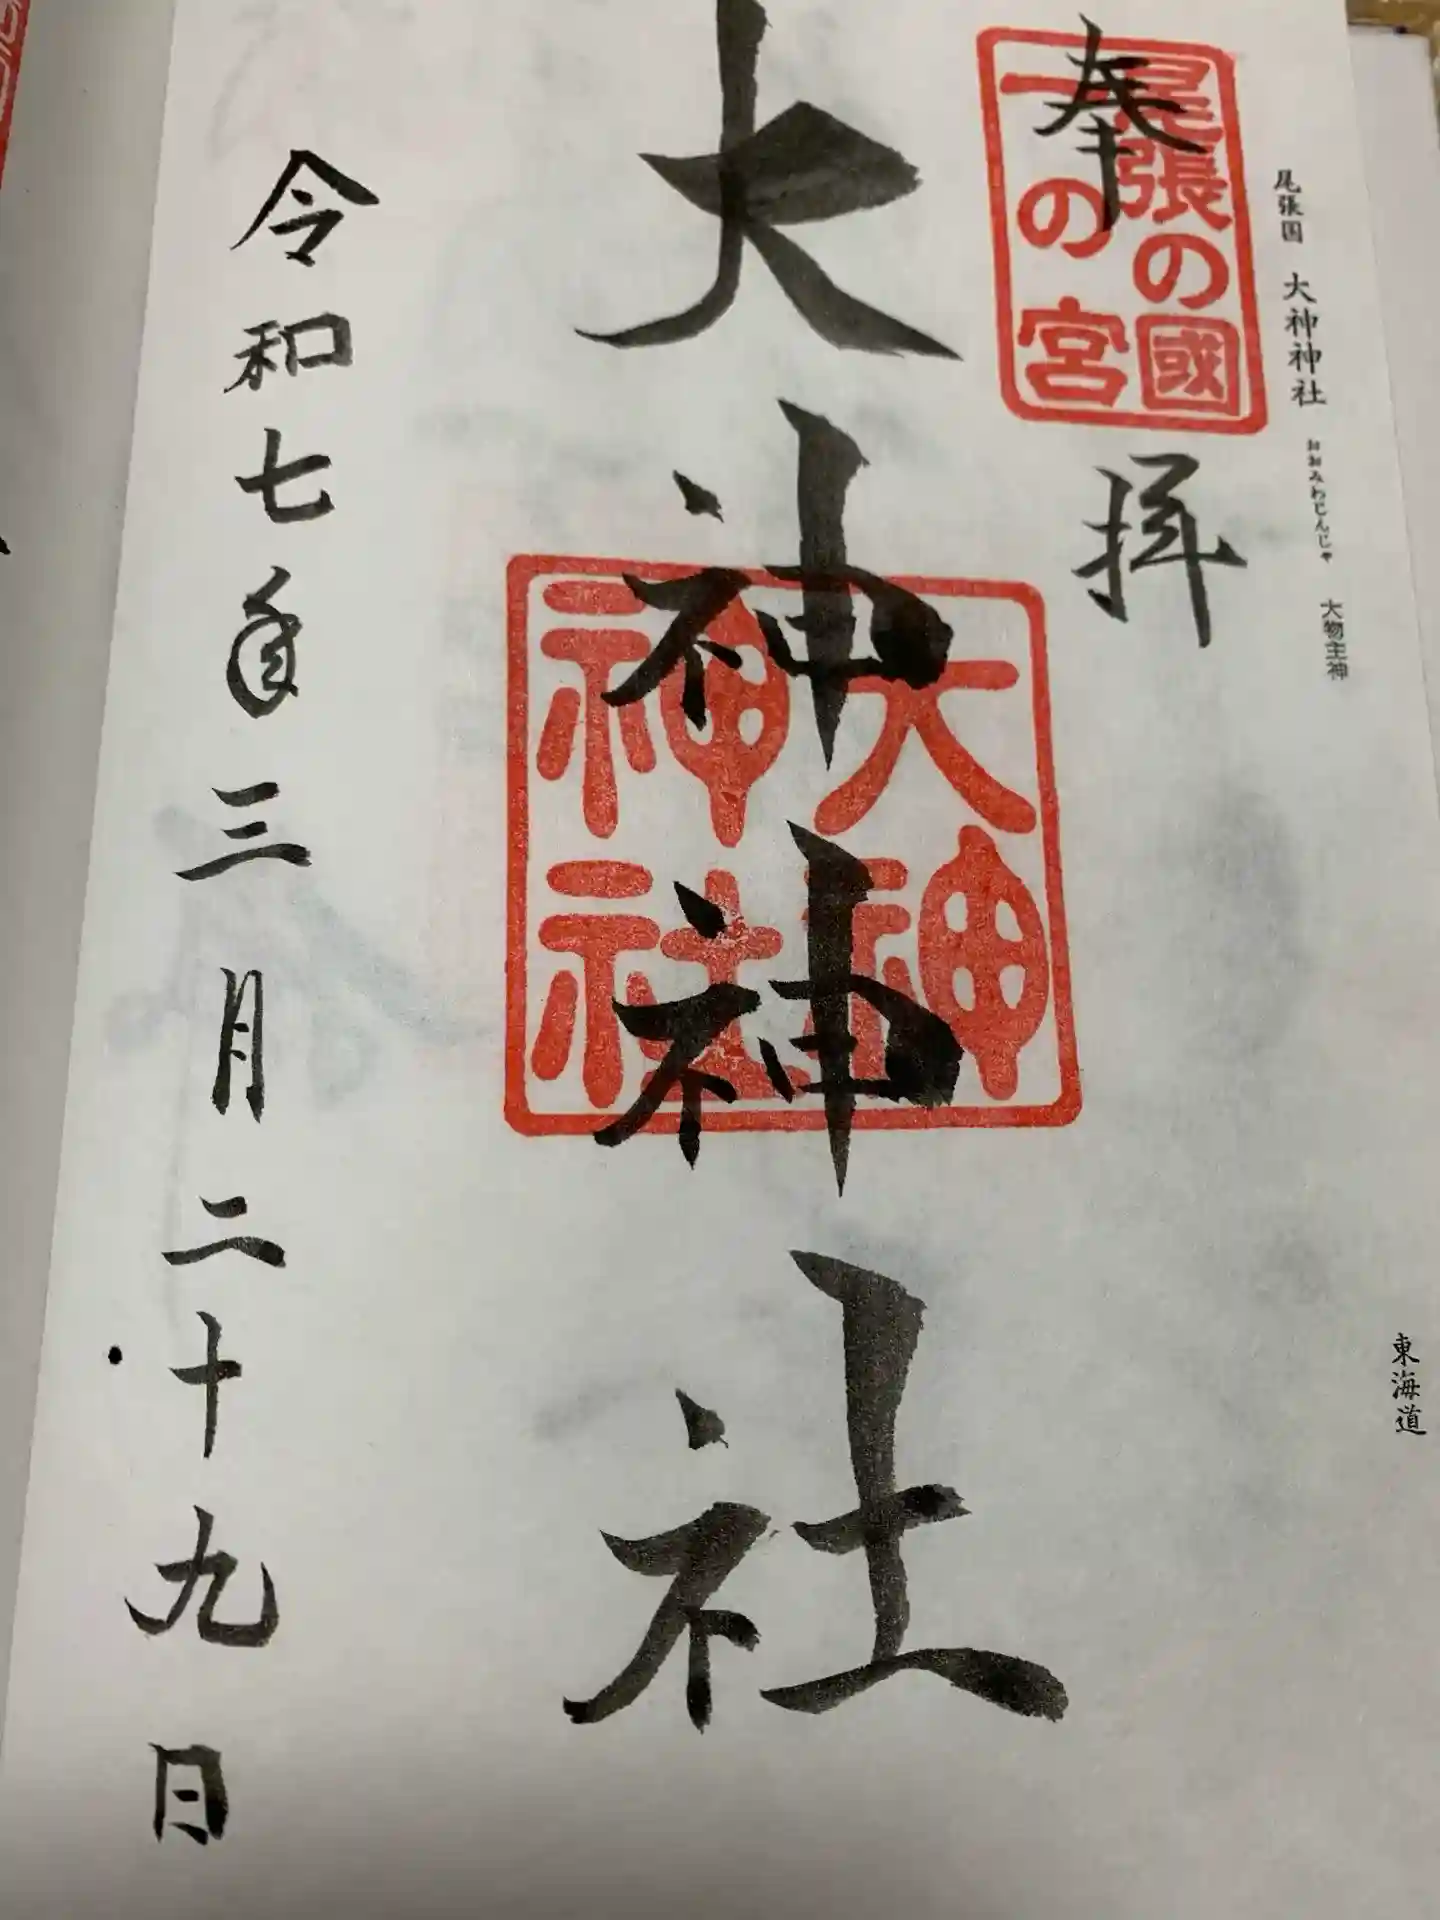 尾張国 大神神社 おおみわじんじゃ 大物主神
東海道
奉拝
尾張の國
一の宮
大神神社
大神
神社
令和七年三月二十九日